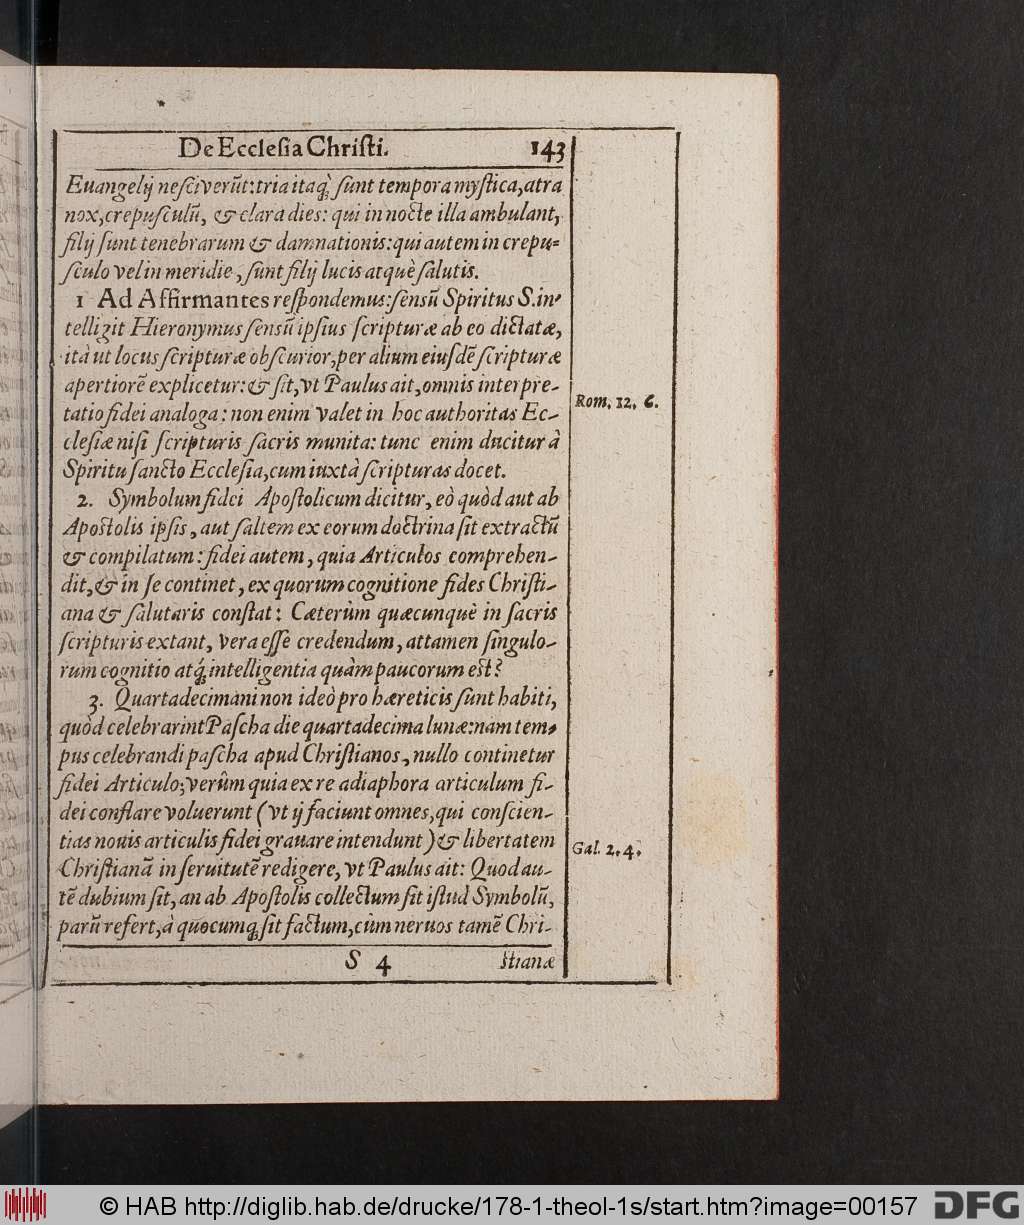 De Eccleſia Chriſti. 143
Euangelij neſciverūt: tria itaq́; ſunt tempora myſtica, atra
nox, crepuſculū, & clara dies: qui in nocte illa ambulant,
filij ſunt tenebrarum & damnationis: qui autem in crepu-
ſculo vel in meridie, ſunt filij lucis atquè ſalutis.
1 Ad Affirmantes reſpondemus: ſensū Spiritus S. in-
telligit Hieronymus ſensū ipſius ſcripturæ ab eo dictatæ,
ità ut locus ſcripturæ obſcurior, per alium eiuſdē ſcripturæ
apertiorē explicetur: & ſit, vt Paulus ait, omnis interpre-
tatio fidei analoga: non enim valet in hoc authoritas Ec-
cleſiæ niſi ſcripturis ſacris munita: tunc enim ducitur à
Spiritu ſancto Eccleſia, cum iuxtà ſcripturas docet.
Rom. 12. 6.
2. Symbolum fidei Apoſtolicum dicitur, eò quòd aut ab
Apoſtolis ipſis, aut ſaltem ex eorum doctrina ſit extractū
& compilatum: fidei autem, quia Articulos comprehen-
dit, & in ſe continet, ex quorum cognitione fides Chriſti-
ana & ſalutaris conſtat: Cæterùm quæcunquè in ſacris
ſcripturis extant, vera eſſe credendum, attamen ſingulo-
rum cognitio atq́; intelligentia quàm paucorum eſt?
3. Quartadecimani non ideò pro hæreticis ſunt habiti,
quòd celebrarint Paſcha die quartadecima lunæ: nam tem-
pus celebrandi paſcha apud Chriſtianos, nullo continetur
fidei Articulo; verûm quia ex re adiaphora articulum fi-
dei conflare voluerunt (vt ij faciunt omnes, qui conſcien-
tias nouis articulis fidei grauare intendunt) & libertatem
Chriſtianā in ſeruitutē redigere, vt Paulus ait: Quod au-
tē dubium ſit, an ab Apoſtolis collectum ſit iſtud Symbolū,
parū refert, à quocumq; ſit factum, cùm neruos tamē Chri-
Gal. 2. 4.
S 4 ſtianæ
© HAB http://diglib.hab.de/drucke/178-1-theol-1s/start.htm?image=00157
DFG